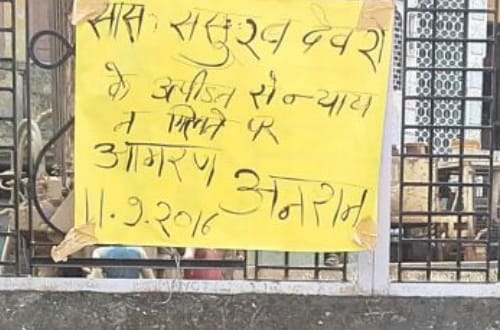 सास, ससुर व देवरो
के उत्पीडन से न्याय
न मिलने पर
आमरण अनशन
11.9.2016